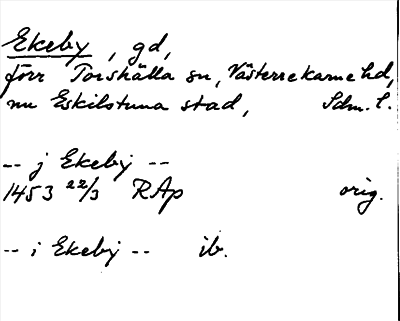 Ekeby, gd,
förr Torshälla sn, Västerrekarne hd,
nu Eskilstuna stad, Sdm. l.
-- j Ekeby --
1453 22/3 RAp orig.
-- i Ekebj -- ib.